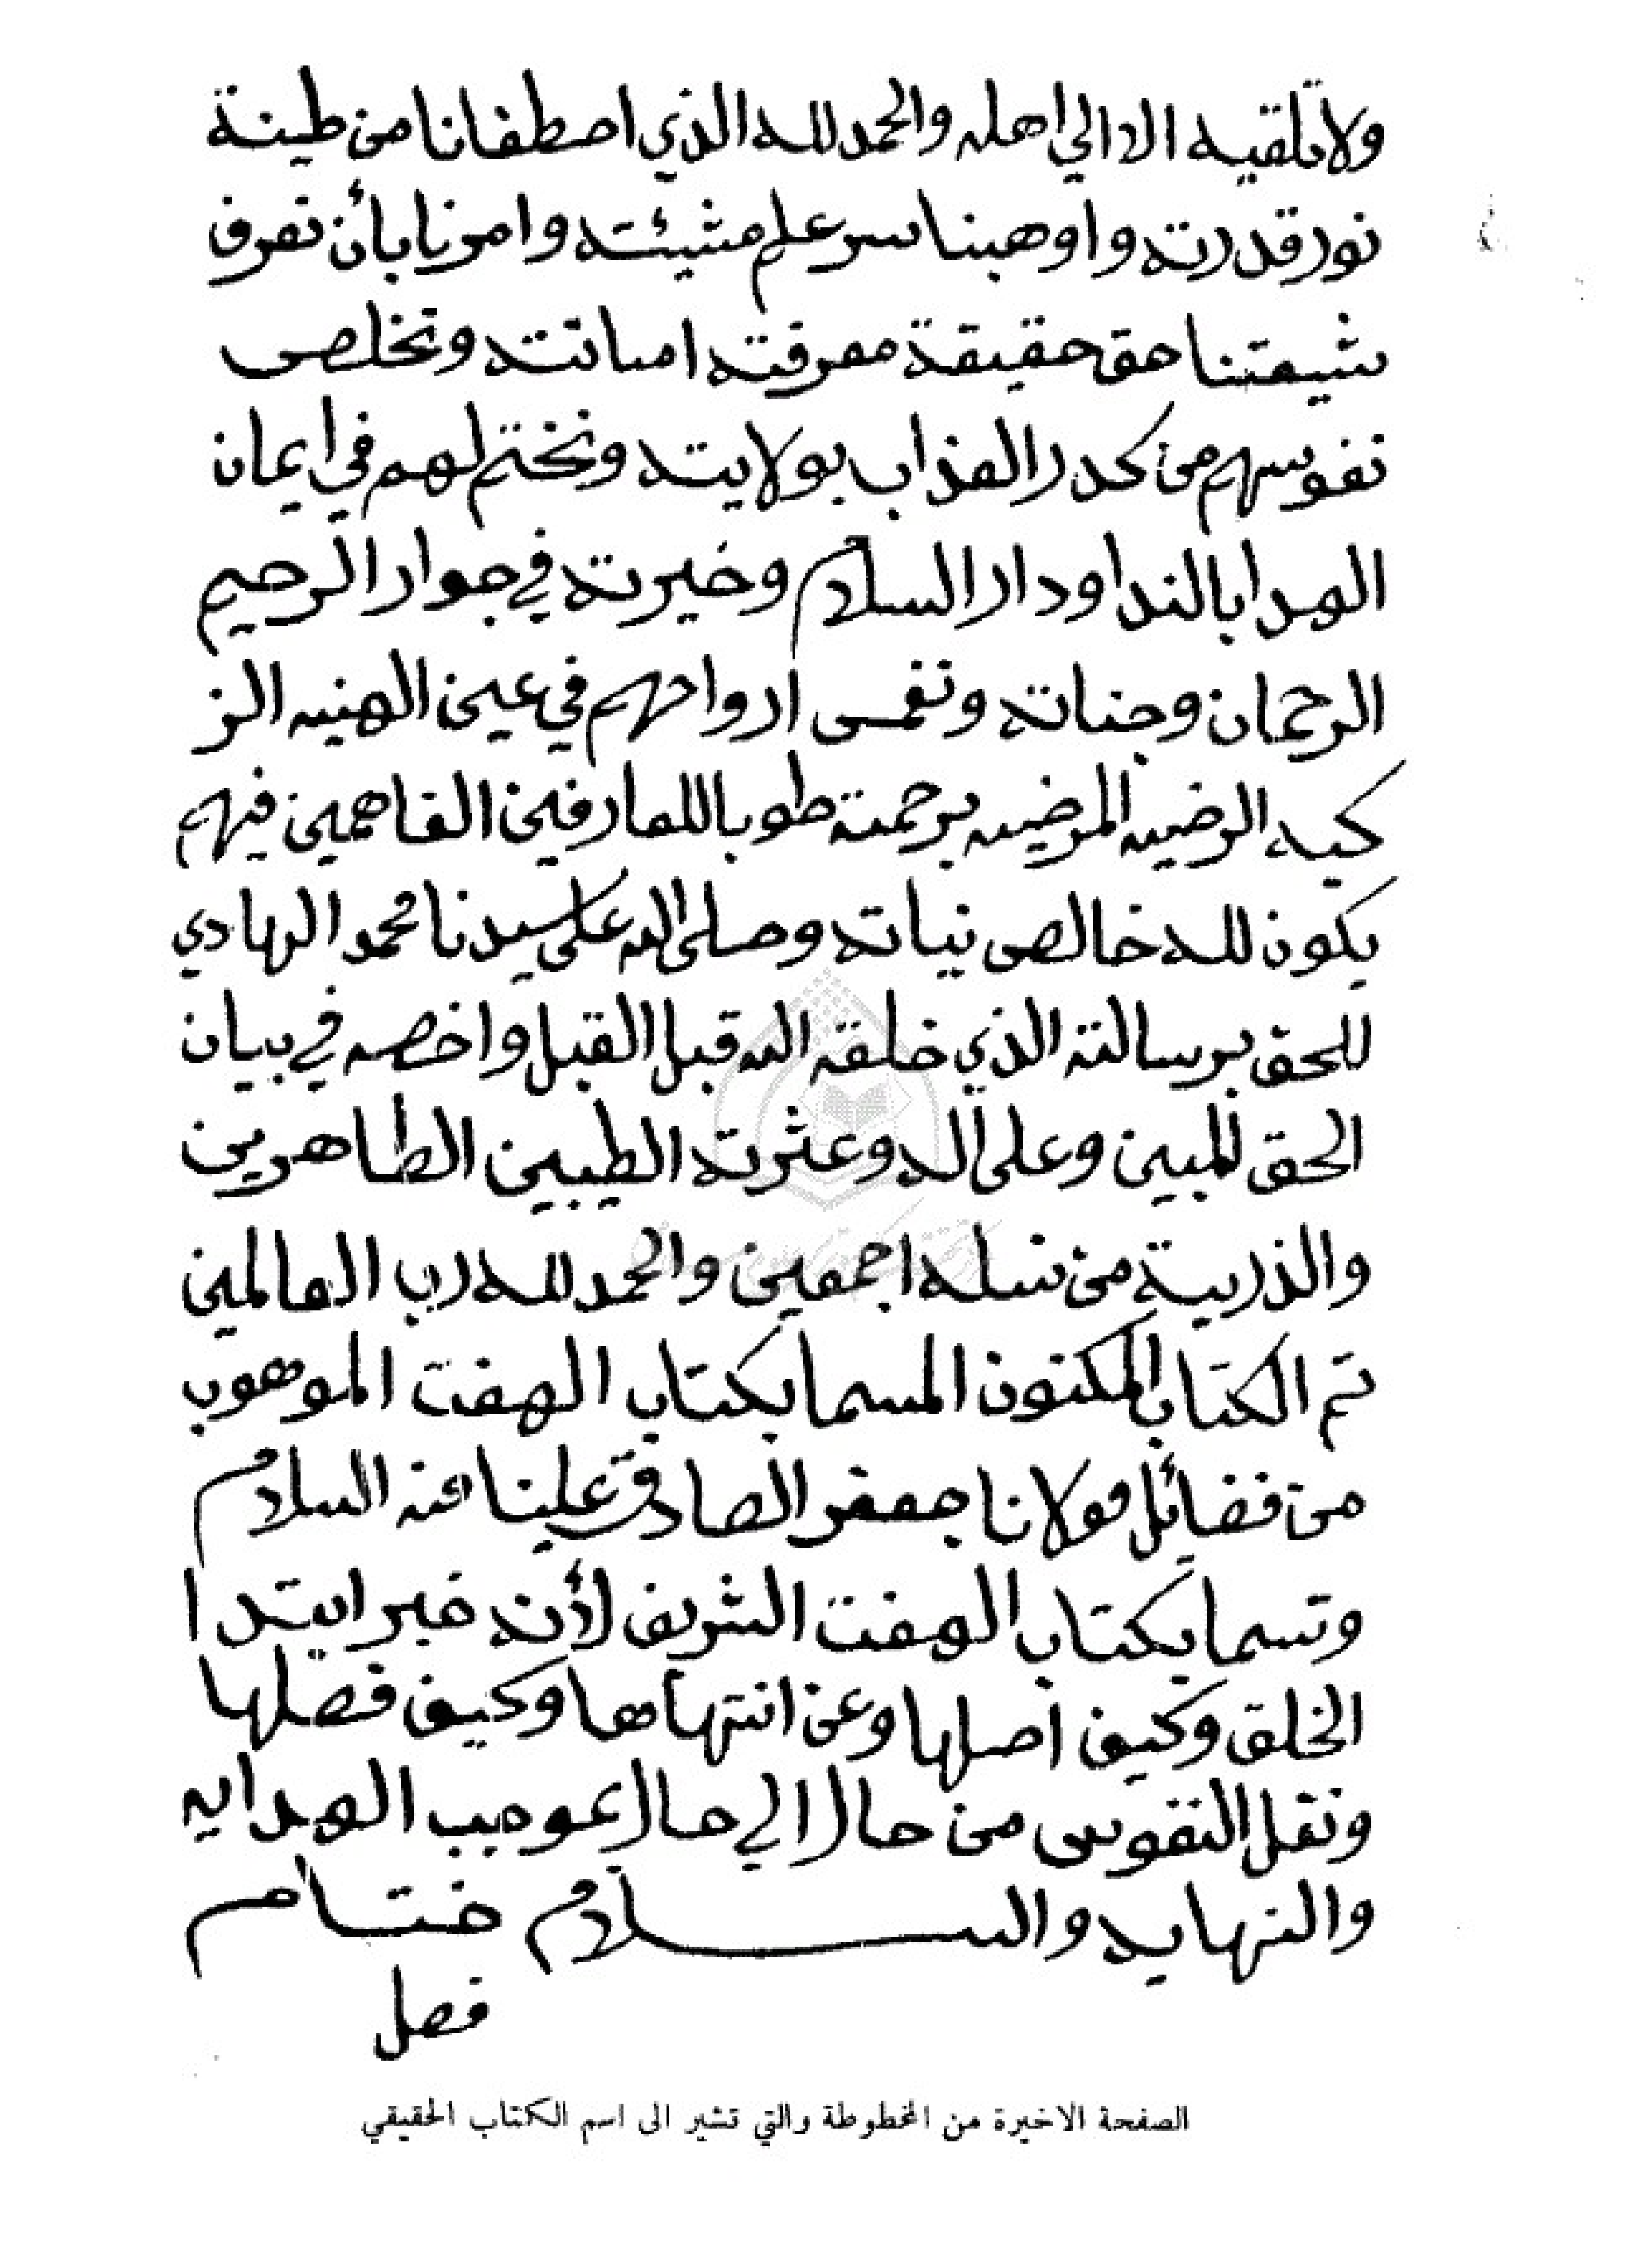 ولا تلقيه الا الي اهله والحمد لله الذي اصطفانا من طينة
نور قدرته واوهبنا سر علم مشيئته وامرنا بأن نعرف
شيعتنا حق حقيقة معرفته امانته ونخلص
نفوسهم من كدر العذاب بولايته ونختم لهم في ايمان
الهدا بالندا ودار السلام وخيرته في جوار الرحيم
الرحمان وجناته ونغمس ارواحهم في عين الهنيه الز
كيه الرضيه المرضيه برحمته طوبا للعارفين الفاهمين فيهم
يكون لله خالص نياته وصلى الله على سيدنا محمد الهادي
للحق برسالته الذي خلقه الله قبل القبل واخصه في بيان
الحق المبين وعلى اله وعثرته الطيبين الطاهرين
والذرية من نسله اجمعين والحمد لله رب العالمين
تم الكتاب المكنون المسما بكتاب الهفت الموهوب
من فضائل مولانا جعفر الصادق علينا منه السلام
وتسما بكتاب الهفت الشريف لأنه خبر ابتدا
الخلق وكيف اصلها وعن انتهاها وكيف فصلها
ونقل النفوس من حال الي حال بموجب الهدايه
والنهايه والسلام ختام
فصل
الصفحة الاخيرة من المخطوطة والتي تشير الى اسم الكتاب الحقيقي